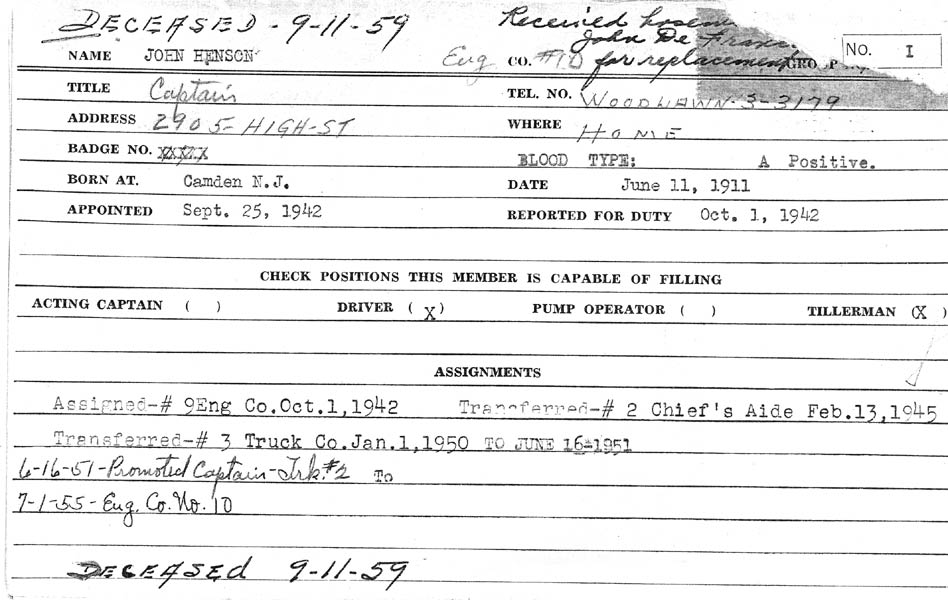 DECEASED - 9-11-59 Received
John De
NAME JOHN HENSON Eng CO. #10 for replacement GROUP NO. I
TITLE Captain TEL. NO. WOODLAWN-3-3179
ADDRESS 2905-HIGH-ST WHERE HOME
BADGE NO. BLOOD TYPE: A Positive.
BORN AT. Camden N.J. DATE June 11, 1911
APPOINTED Sept. 25, 1942 REPORTED FOR DUTY Oct. 1, 1942
CHECK POSITIONS THIS MEMBER IS CAPABLE OF FILLING
ACTING CAPTAIN ( ) DRIVER (X) PUMP OPERATOR ( ) TILLERMAN (X)
ASSIGNMENTS
Assigned-# 9Eng Co.Oct.1,1942 Transferred-# 2 Chief's Aide Feb.13,1945
Transferred-# 3 Truck Co.Jan.1,1950 TO JUNE 16-1951
6-16-51-Promoted Captain-Trk.#2 To
7-1-55-Eng. Co. No. 10
DECEASEd 9-11-59